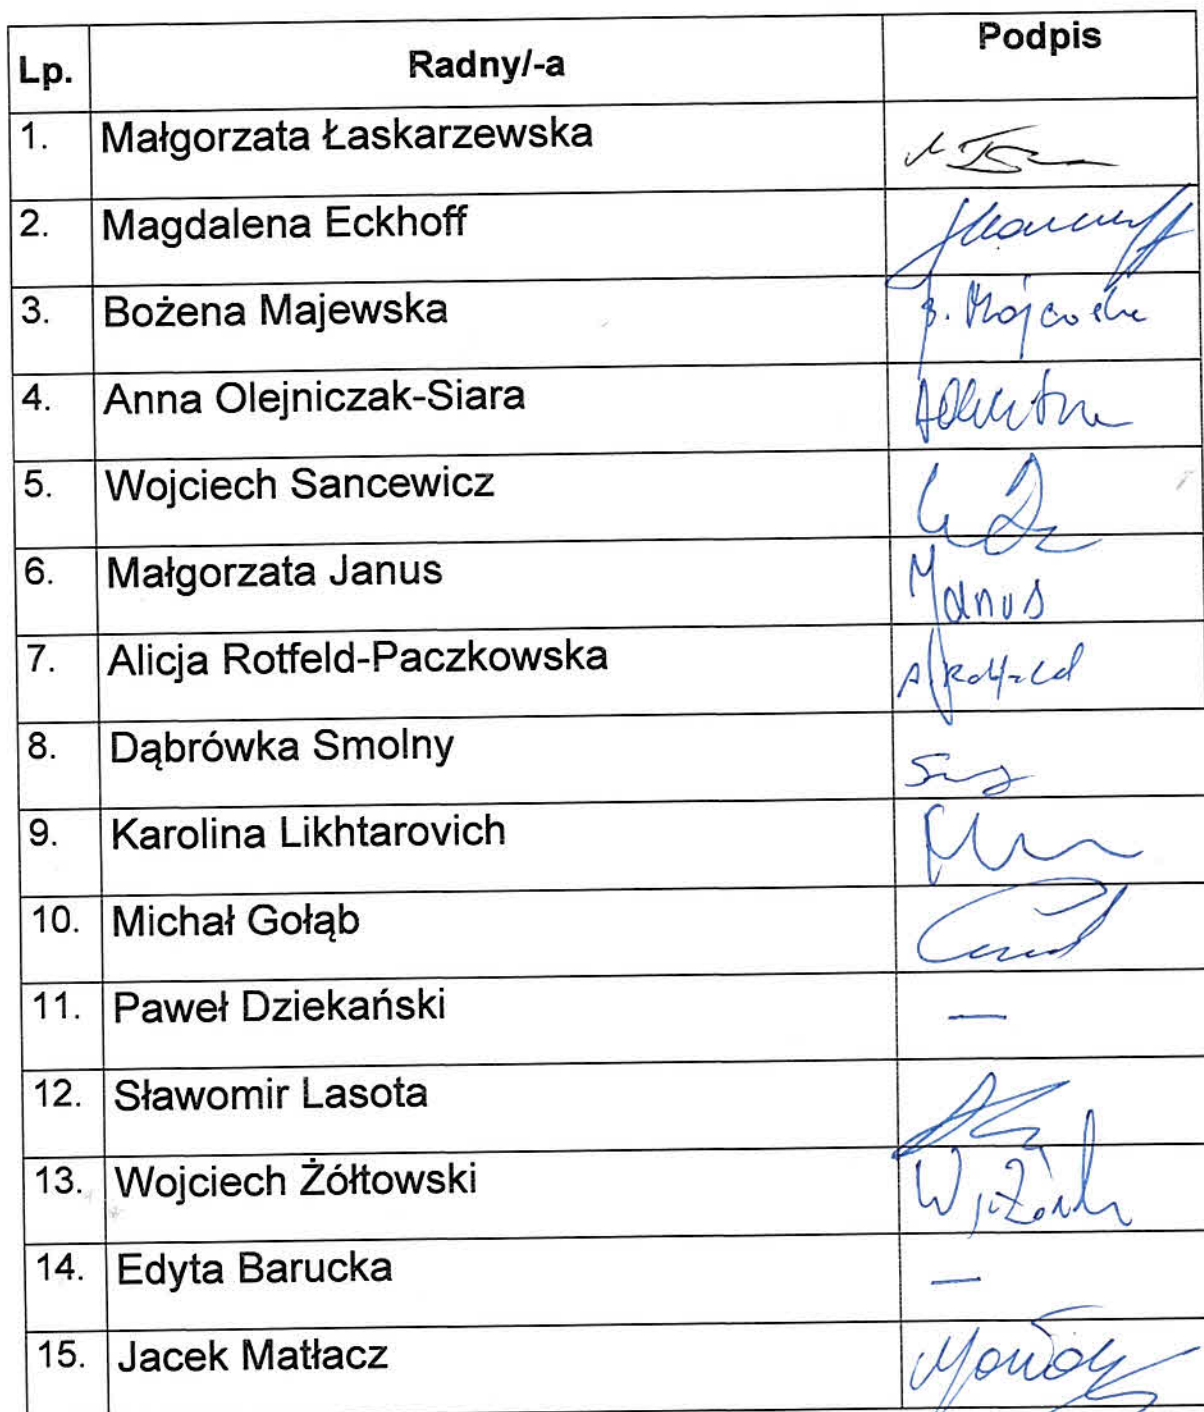 Lp. Radny/-a Podpis
1. Małgorzata Łaskarzewska
2. Magdalena Eckhoff
3. Bożena Majewska
4. Anna Olejniczak-Siara
5. Wojciech Sancewicz
6. Małgorzata Janus MJanus
7. Alicja Rotfeld-Paczkowska
8. Dąbrówka Smolny
9. Karolina Likhtarovich
10. Michał Gołąb
11. Paweł Dziekański —
12. Sławomir Lasota
13. Wojciech Żółtowski
14. Edyta Barucka —
15. Jacek Matłacz